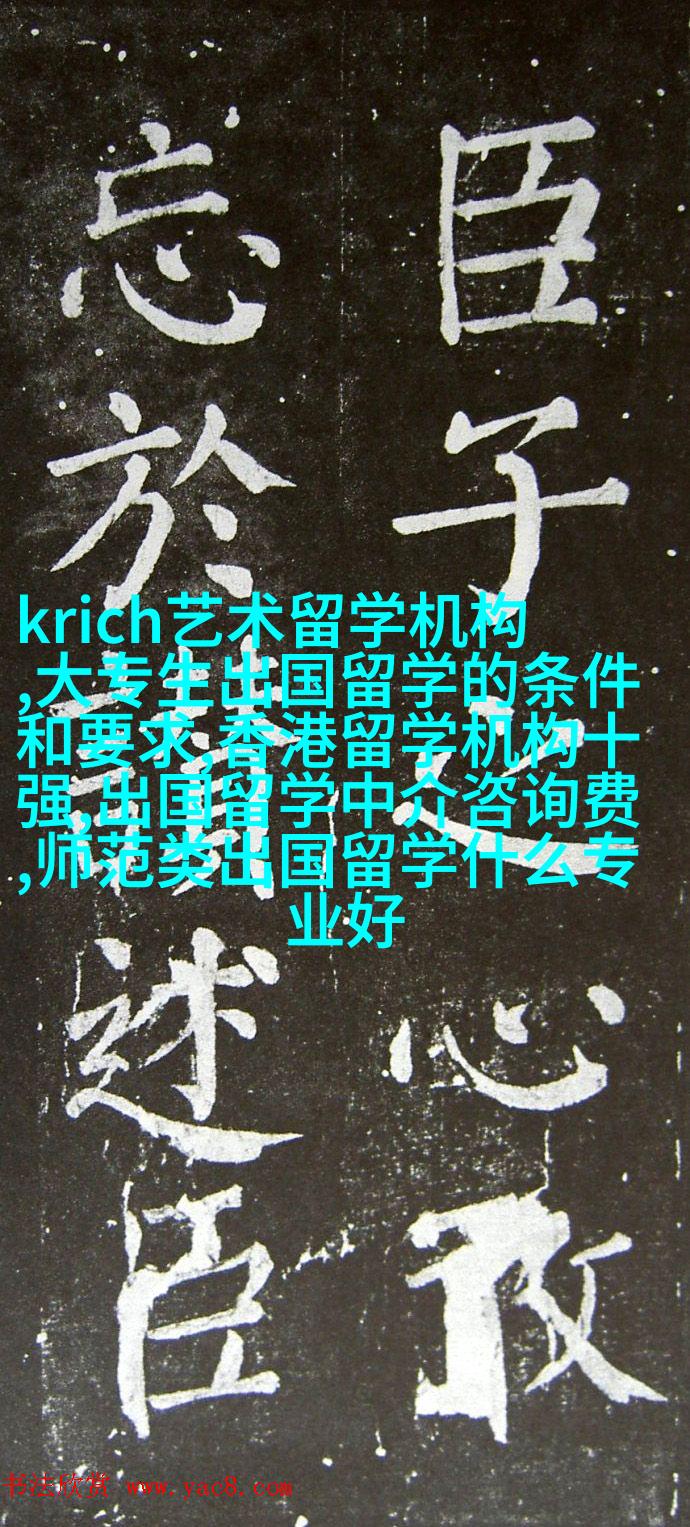 臣子之心敢
忘於讚述臣
krich艺术留学机构
,大专生出国留学的条件
和要求,香港留学机构十
强,出国留学中介咨询费
,师范类出国留学什么专
业好
书法欣赏 www.yac8.com